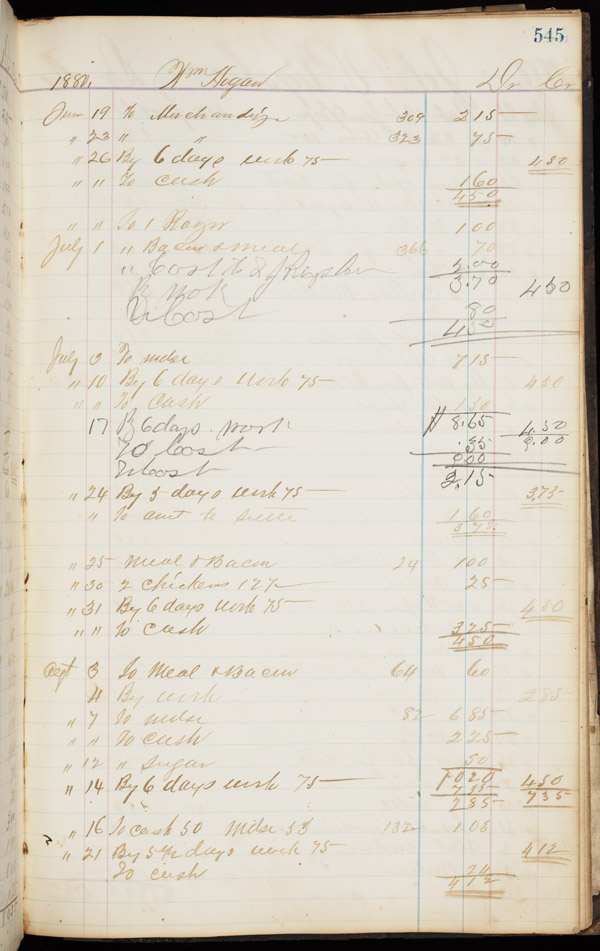 545
1881, Wm Hogan Dr Cr
June 19 To Merchandize 309 215
" 23 " " 323 75
" 26 By 6 days work 75 450
" " To cash 160
450
" " To 1 Razor 100
July 1 " Bacon & meal 366 70
" Cash to J 200
3.70 450
To Cash 80
450
July 9 To mdse 715
" 10 By 6 days work 75 450
" " To Cash 150
17 By 6 days work 8.65 4.50
To Cash .35 9.00
900
To Cash 2.15
" 24 By 5 days work 75 375
" To amt to settle 160
375
" 25 Meal & Bacon 24 100
" 30 2 chickens 12½ 25
" 31 By 6 days work 75 450
" " To Cash 325
450
Sept 3 To Meal & Bacon 64 60
4 By work 285
" 7 To mdse 82 685
" " To cash 225
" 12 " sugar 50
" 14 By 6 days work 75 1020 450
735 735
285
" 16 To cash 50 Mdse 55 132 105
" 21 By 5½ days work 75 412
To cash
412